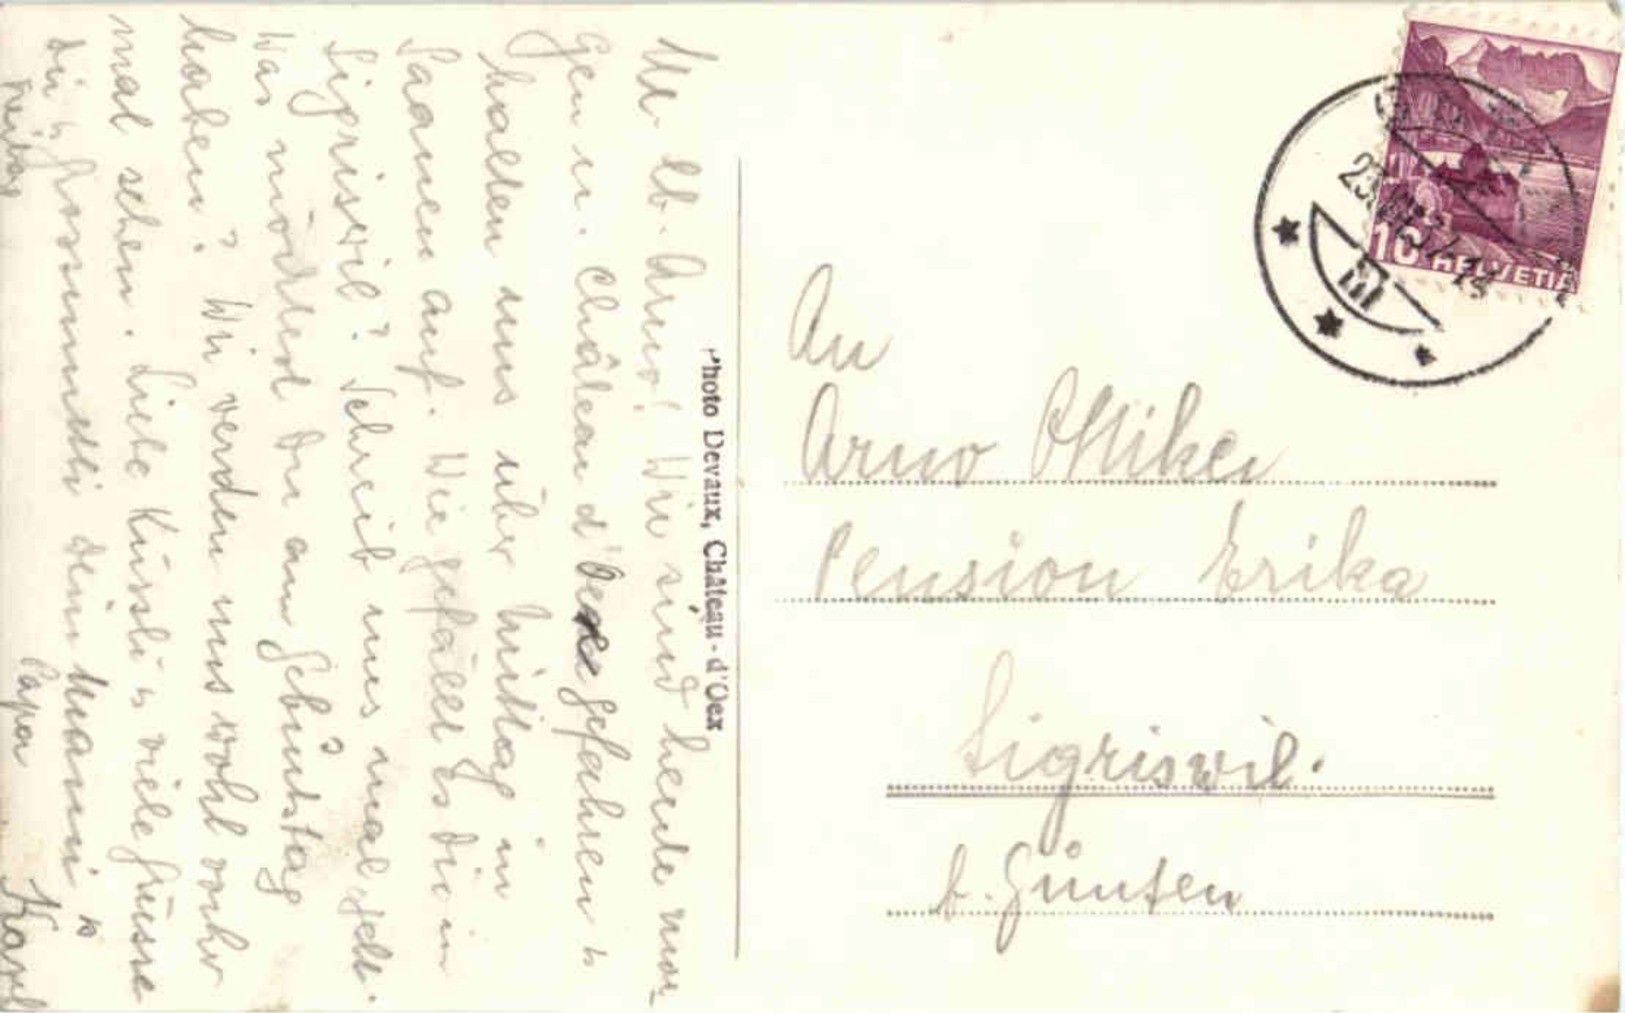 M. lb. Arno! Wir sind heute mor-
gen n. Château d'Oex gefahren u
halten uns über Mittag in
Saanen auf. Wie gefällt es Dir in
Sigriswil? Schreib uns mal gell.
Was möchtest Du am Gebürtstag
haben? Wir werden uns wohl vorher
mal sehen. Liebe Küssli u viele Grüsse
Dir u Grossmuetti Dein Mammi u
Freitag Papa Karl
Photo Devaux, Château-d'Oex
An
Arno
Pension Erika
Sigriswil.
b. Gunten
10 HELVETIA